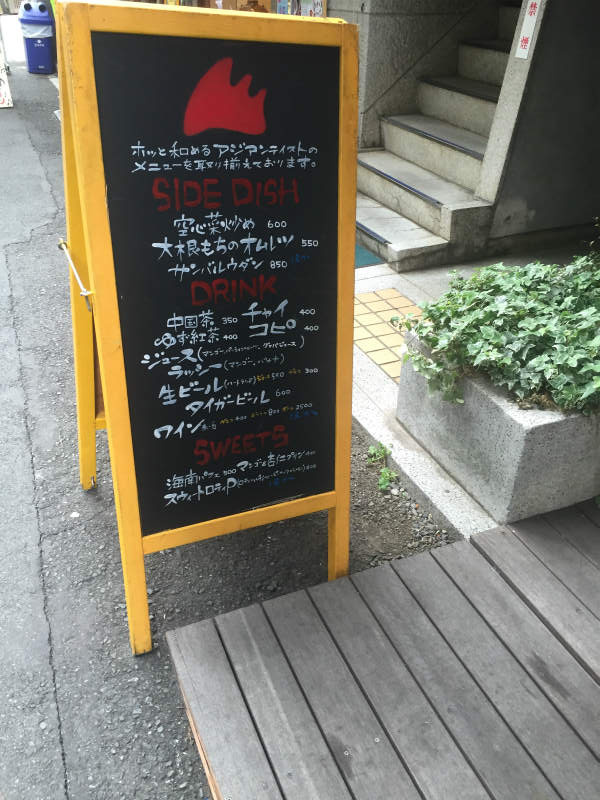 禁煙
ホッと和めるアジアンテイストの
メニューを取り揃えております。
SIDE DISH
空心菜炒め 600
大根もちのオムレツ 550
サンバルウダン 850
DRINK
中国茶 350 チャイ 400
ゆず紅茶 400 コピ 400
ジュース(マンゴー、
ラッシー(マンゴー、バナナ)
生ビール(ハートランド) 550 300
タイガービール 600
ワイン 400 800 2500
SWEETS
海南パフェ 500 マンゴー&杏仁プリン 400
スウィートロティP